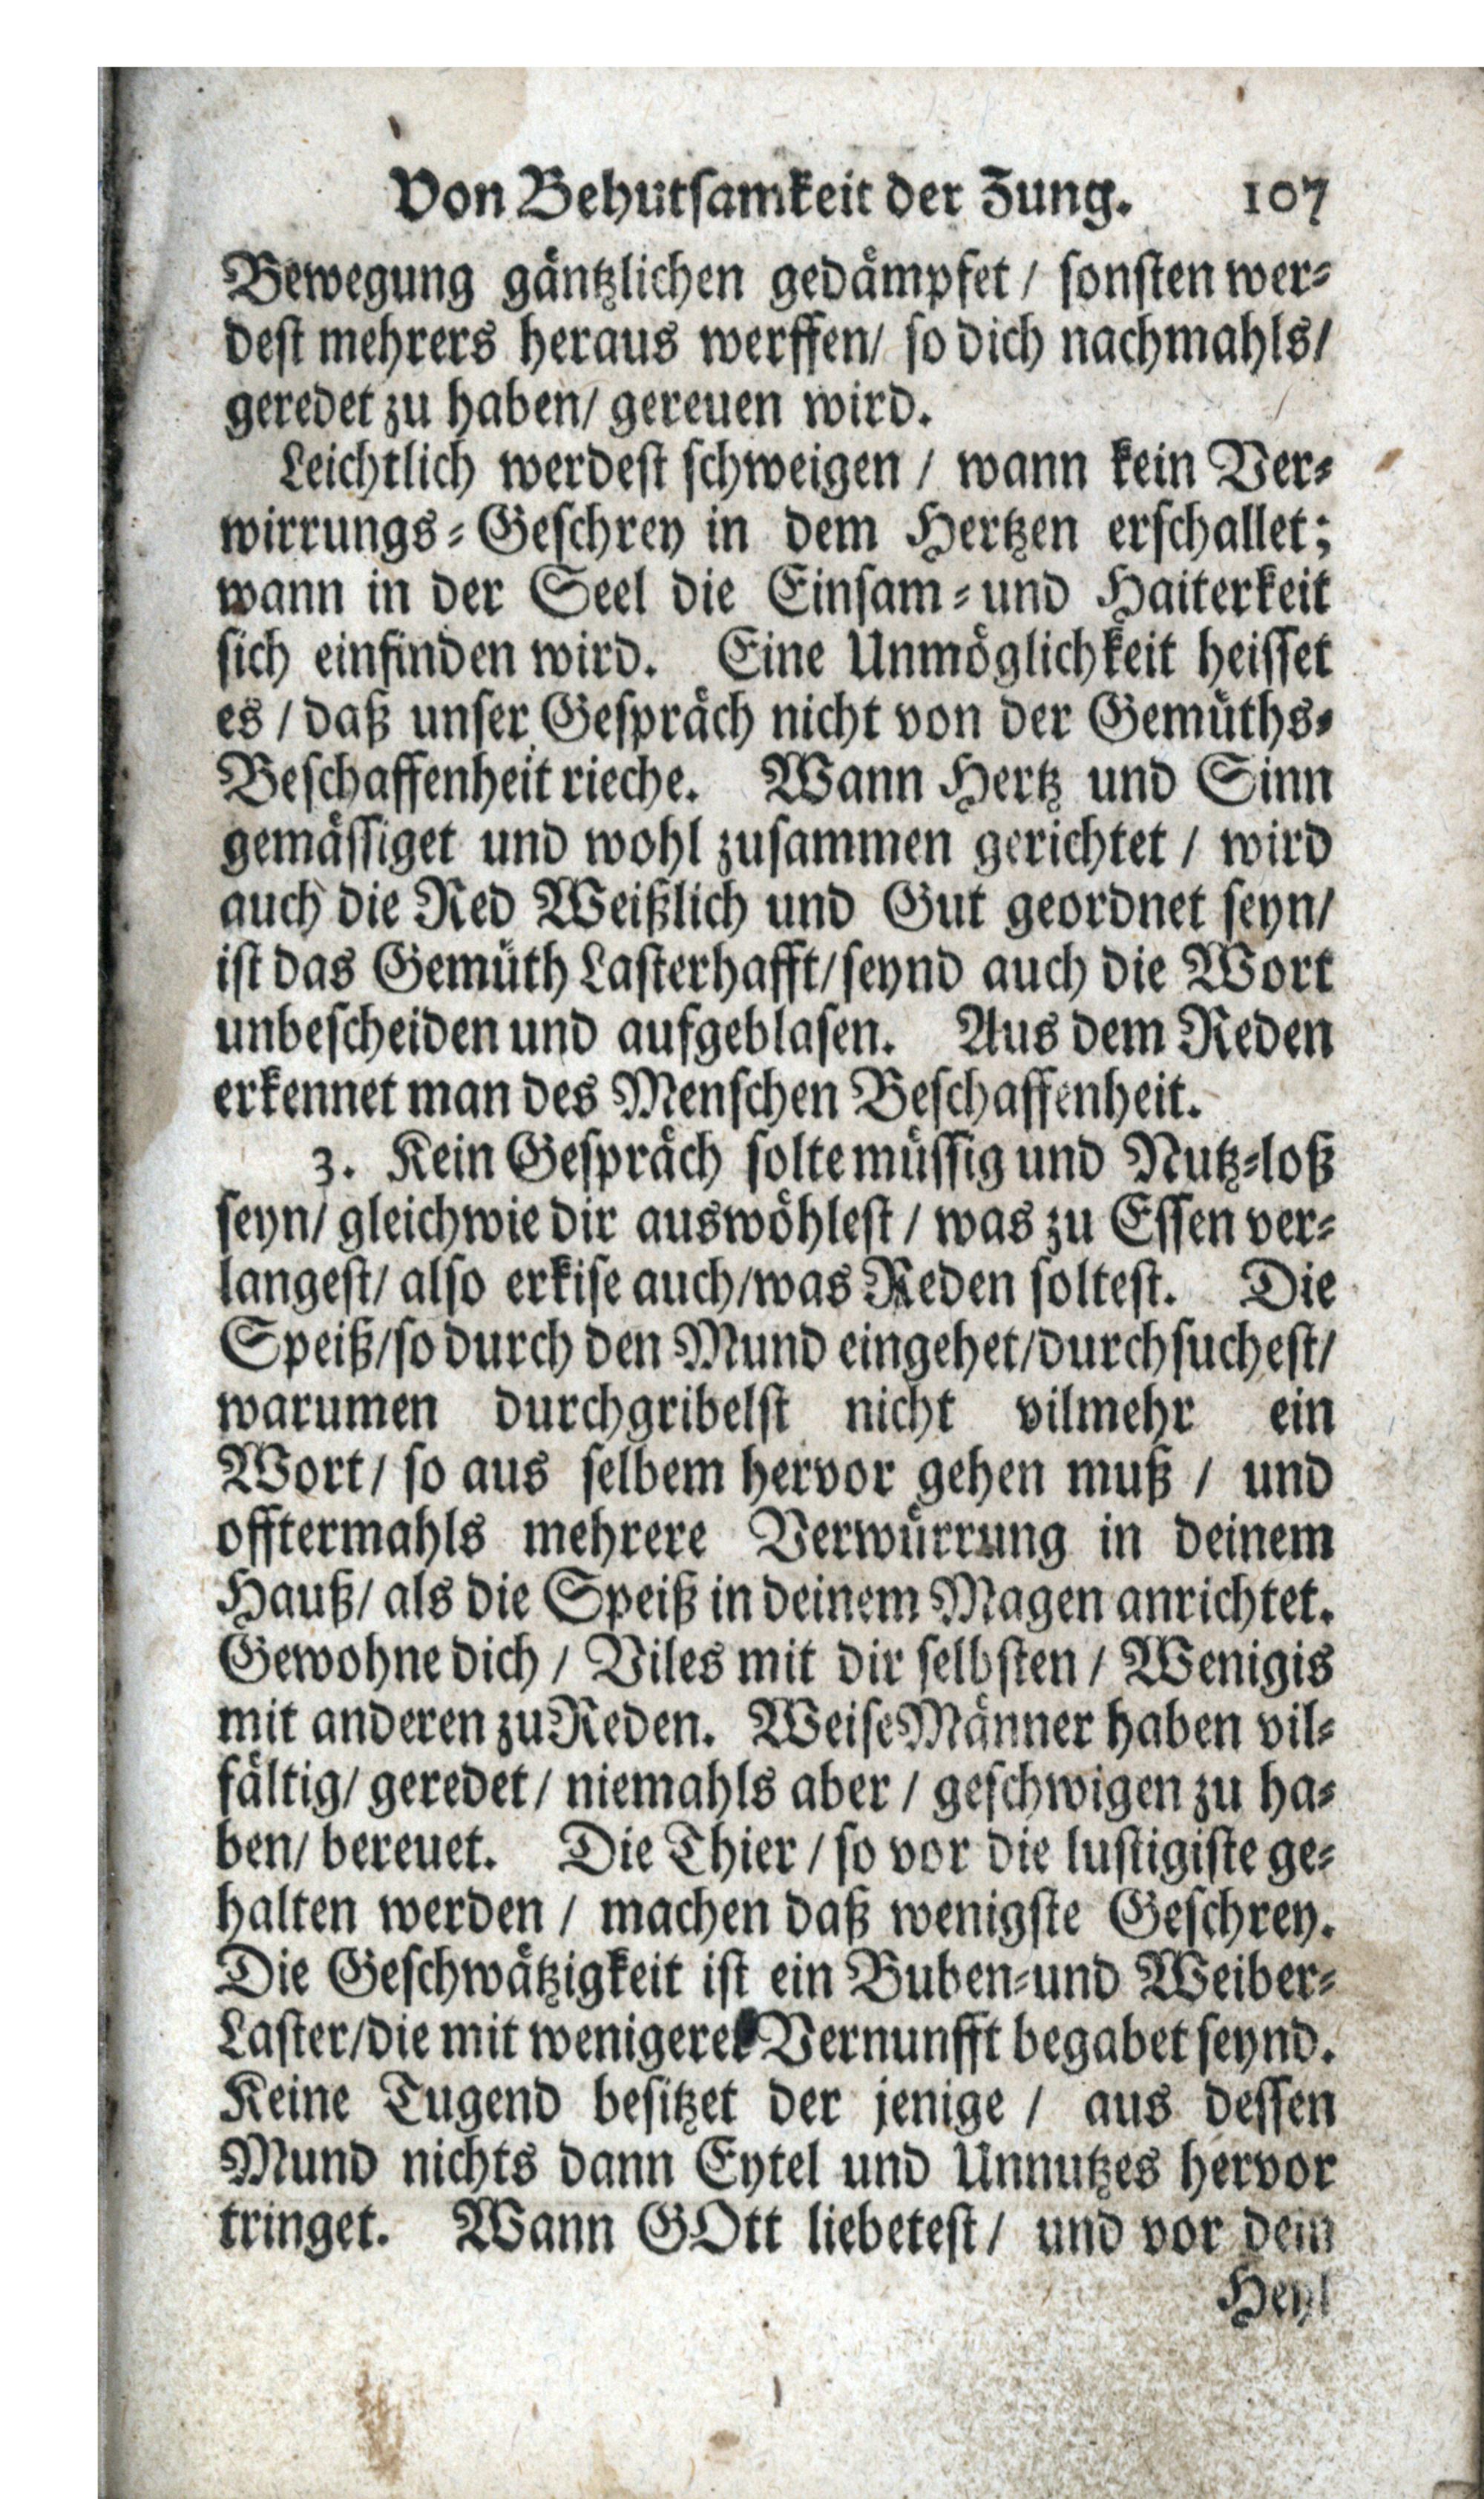 Von Behutsamkeit der Zung. 107
Bewegung gäntzlichen gedämpfet / sonsten wer⸗
dest mehrers heraus werffen/ so dich nachmahls/
geredet zu haben/ gereuen wird.
Leichtlich werdest schweigen / wann kein Ver⸗
wirrungs⸗Geschrey in dem Hertzen erschallet;
wann in der Seel die Einsam⸗und Haiterkeit
sich einfinden wird. Eine Unmöglichkeit heisset
es / daß unser Gespräch nicht von der Gemüths⸗
Beschaffenheit rieche. Wann Hertz und Sinn
gemässiget und wohl zusammen gerichtet / wird
auch die Red Weißlich und Gut geordnet seyn/
ist das Gemüth Lasterhafft/seynd auch die Wort
unbescheiden und aufgeblasen. Aus dem Reden
erkennet man des Menschen Beschaffenheit.
3. Kein Gespräch solte müssig und Nutz⸗loß
seyn/ gleichwie dir auswöhlest / was zu Essen ver⸗
langest/ also erkise auch/was Reden soltest. Die
Speiß/so durch den Mund eingehet/durchsuchest/
warumen durchgribelst nicht vilmehr ein
Wort/ so aus selbem hervor gehen muß / und
offtermahls mehrere Verwürrung in deinem
Hauß/ als die Speiß in deinem Magen anrichtet.
Gewohne dich / Viles mit dir selbsten / Wenigis
mit anderen zu Reden. Weise Männer haben vil⸗
fältig/ geredet / niemahls aber / geschwigen zu ha⸗
ben/ bereuet. Die Thier / so vor die lustigiste ge⸗
halten werden / machen daß wenigste Geschrey.
Die Geschwätzigkeit ist ein Buben⸗und Weiber⸗
Laster/die mit wenigerer Vernunfft begabet seynd.
Keine Tugend besitzet der jenige / aus dessen
Mund nichts dann Eytel und Unnutzes hervor
tringet. Wann GOtt liebetest / und vor dem
Heyl